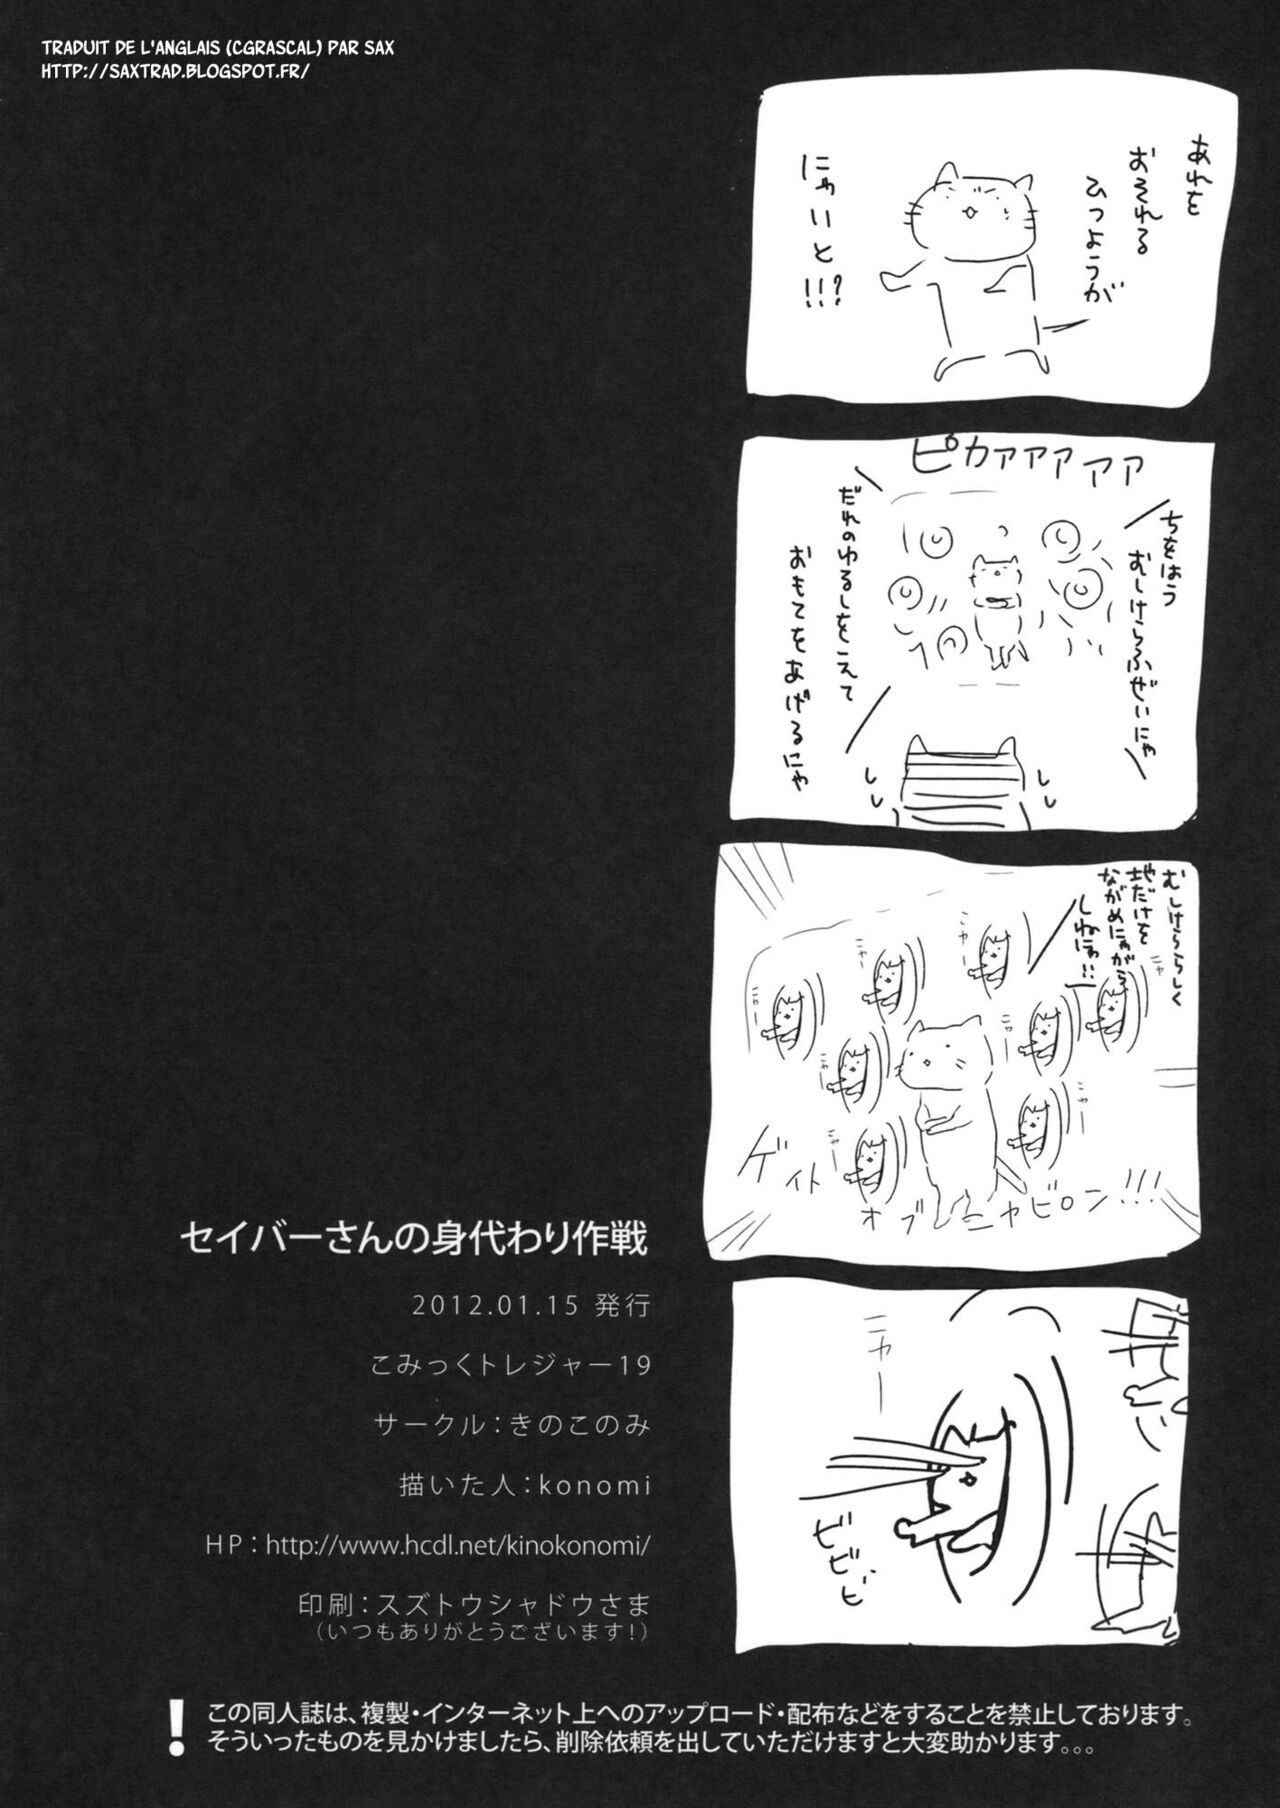 TRADUIT DE L'ANGLAIS (CGRASCAL) PAR SAX
HTTP://SAXTRAD.BLOGSPOT.FR/
あれを
おそれる
ひつようが
にゃいと!!?
ピカァァァァァ
ちをはう
むしけらふぜいにゃ
だれのゆるしをえて
おもてをあげるにゃ
むしけららしく
地だけを
ながめにゃがら
しねにゃ!!
ニャー
ニャー
ニャー
ニャー
ニャー
ニャ
ニャー
ニャー
ゲイト
オブニャビロン!!!
ニャー
ビビビ
セイバーさんの身代わり作戦
2012.01.15 発行
こみっくトレジャー19
サークル：きのこのみ
描いた人：konomi
HP：http://www.hcdl.net/kinokonomi/
印刷：スズトウシャドウさま
（いつもありがとうございます！）
! この同人誌は、複製・インターネット上へのアップロード・配布などをすることを禁止しております。
そういったものを見かけましたら、削除依頼を出していただけますと大変助かります。。。